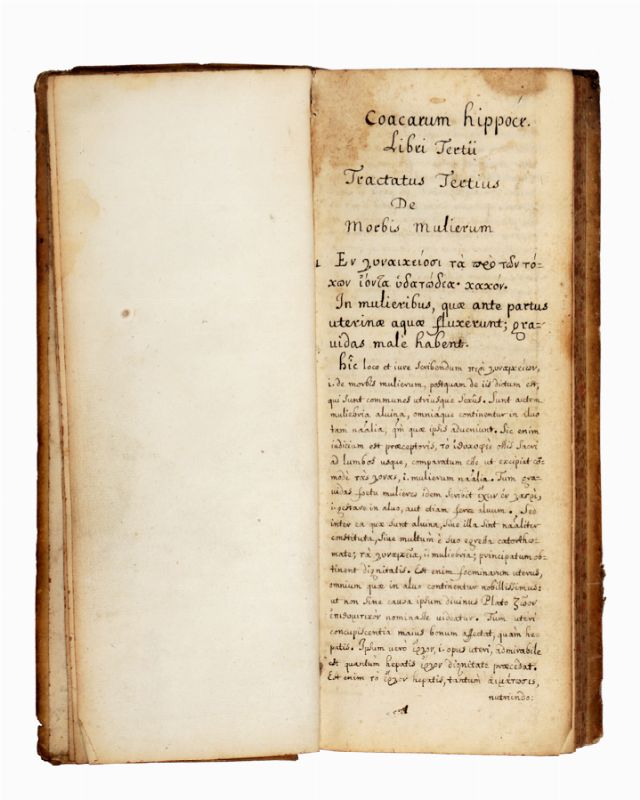 Coacarum hippocr.
Libri Tertii
Tractatus Tertius
De
Morbis Mulierum
1 Εν γυναικείοισι τὰ πρὸ τῶν τό-
κων ἰόντα ὑδατώδεα· κακόν.
In mulieribus, quæ ante partus
uterinæ aquæ fluxerunt; gra-
uidas male habent.
hîc loco et iure scribendum περὶ γυναικείων,
i. de morbis mulierum, postquam de iis dictum est,
qui sunt communes utriusque sexûs. Sunt autem
muliebria aluina, omniaque continentur in aluo
tam naâlia, qm quæ ipsis adueniunt. Sic enim
iudicium est præceptoris, τὸ ossis sacri
ad lumbos usque, comparatum esse ut excipiat cõ-
modè τὰς γονὰς, i. mulierum naâlia. Tum gra-
uidas foetu mulieres idem scribit ἔχειν ἐν γαστρὶ,
i. gestare in aluo, aut etiam ferre aluum. Sed
inter ea quæ sunt aluina, siue illa sint naâliter
constituta, siue multum è suo egressa catorthο-
mate; τὰ γυναικεῖα, i. muliebria; principatum ob-
tinent dignitatis. Est enim foeminarum uterus,
omnium quæ in aluo continentur nobilissimus:
ut non sine causa ipsum diuinus Plato ζῶον
ἐπιθυμητικὸν nominasse uideatur. Tum uteri
concupiscentia maius bonum affectat, quàm he-
patis. Ipsum verò ἔργον, i. opus uteri, admirabile
est quantum hepatis ἔργον dignitate præcedat.
Est enim τὸ ἔργον hepatis, tantùm αἱμάτωσις,
nutriendo: